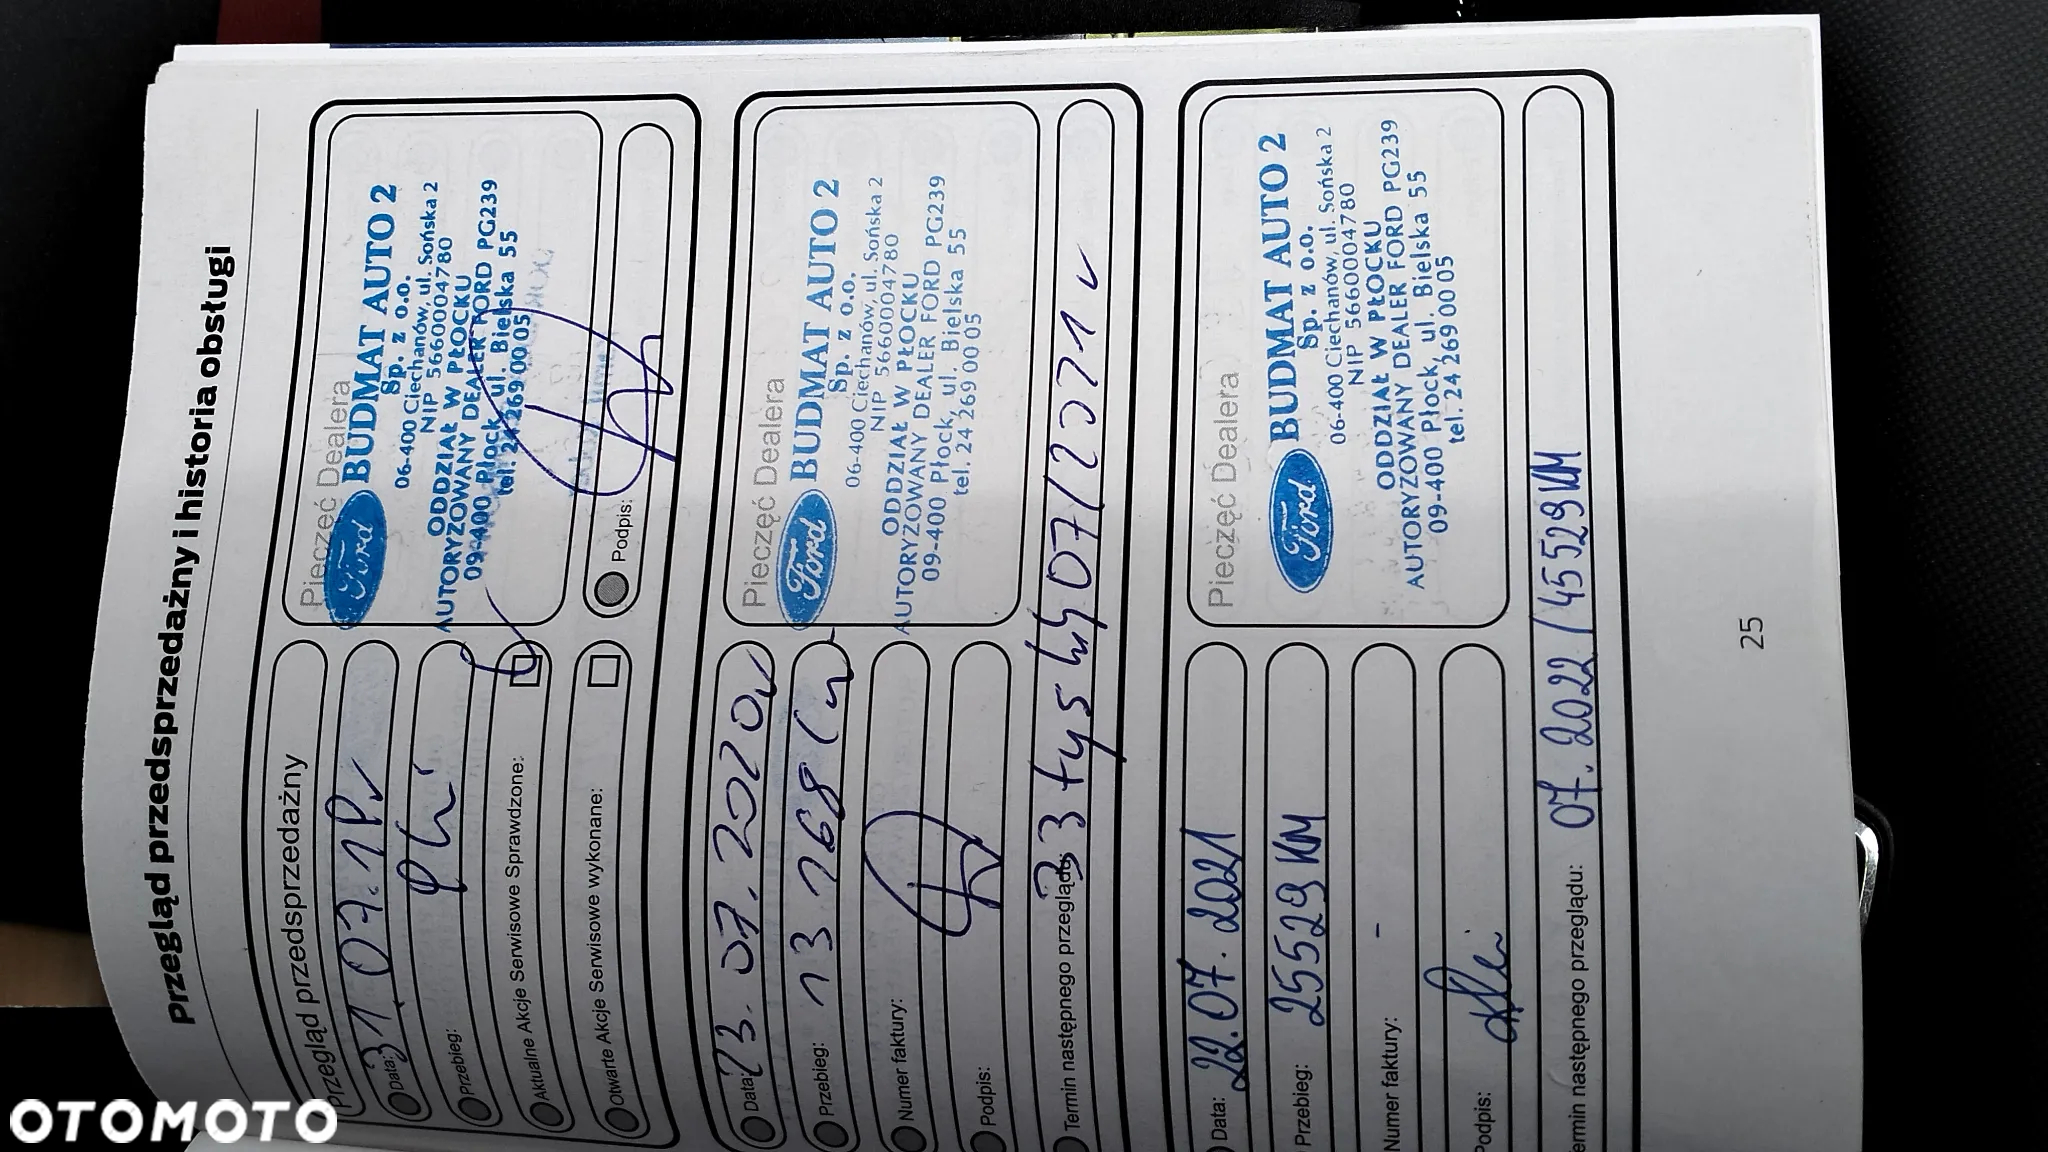 Przegląd przedsprzedażny i historia obsługi
Przegląd przedsprzedażny
Przegląd przedsprzedażny
Data: 31.07.19r
Przebieg:
Aktualne Akcje Serwisowe Sprawdzone:
Otwarte Akcje Serwisowe wykonane:
Pieczęć Dealera
Ford
BUDMAT AUTO 2
Sp. z o.o.
06-400 Ciechanów, ul. Sońska 2
NIP 5660004780
ODDZIAŁ W PŁOCKU
AUTORYZOWANY DEALER FORD PG239
09-400 Płock, ul. Bielska 55
tel. 24 269 00 05
Podpis:
Data: 23.07.2020r
Przebieg: 13 168
Numer faktury:
Podpis:
Pieczęć Dealera
Ford
BUDMAT AUTO 2
Sp. z o.o.
06-400 Ciechanów, ul. Sońska 2
NIP 5660004780
ODDZIAŁ W PŁOCKU
AUTORYZOWANY DEALER FORD PG239
09-400 Płock, ul. Bielska 55
tel. 24 269 00 05
Termin następnego przeglądu: 33 tys 07/2021r
Data: 22.07.2021
Przebieg: 25529 KM
Numer faktury: -
Podpis:
Pieczęć Dealera
Ford
BUDMAT AUTO 2
Sp. z o.o.
06-400 Ciechanów, ul. Sońska 2
NIP 5660004780
ODDZIAŁ W PŁOCKU
AUTORYZOWANY DEALER FORD PG239
09-400 Płock, ul. Bielska 55
tel. 24 269 00 05
ermin następnego przeglądu: 07.2022/45529 KM
25
OTOMOTO